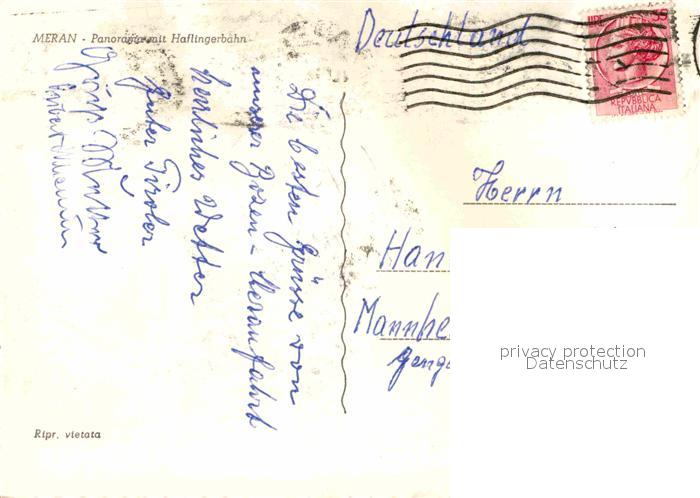 MERAN - Panorama mit Haflingerbahn
Deutschland
LIRE 55
REPVBBLICA
ITALIANA
Die besten Grüsse von
unserer Bozen - Meranfahrt
herrliches Wetter
guter Tiroler
Herrn
Han
Mannhe
Genge
privacy protection
Datenschutz
Ripr. vietata